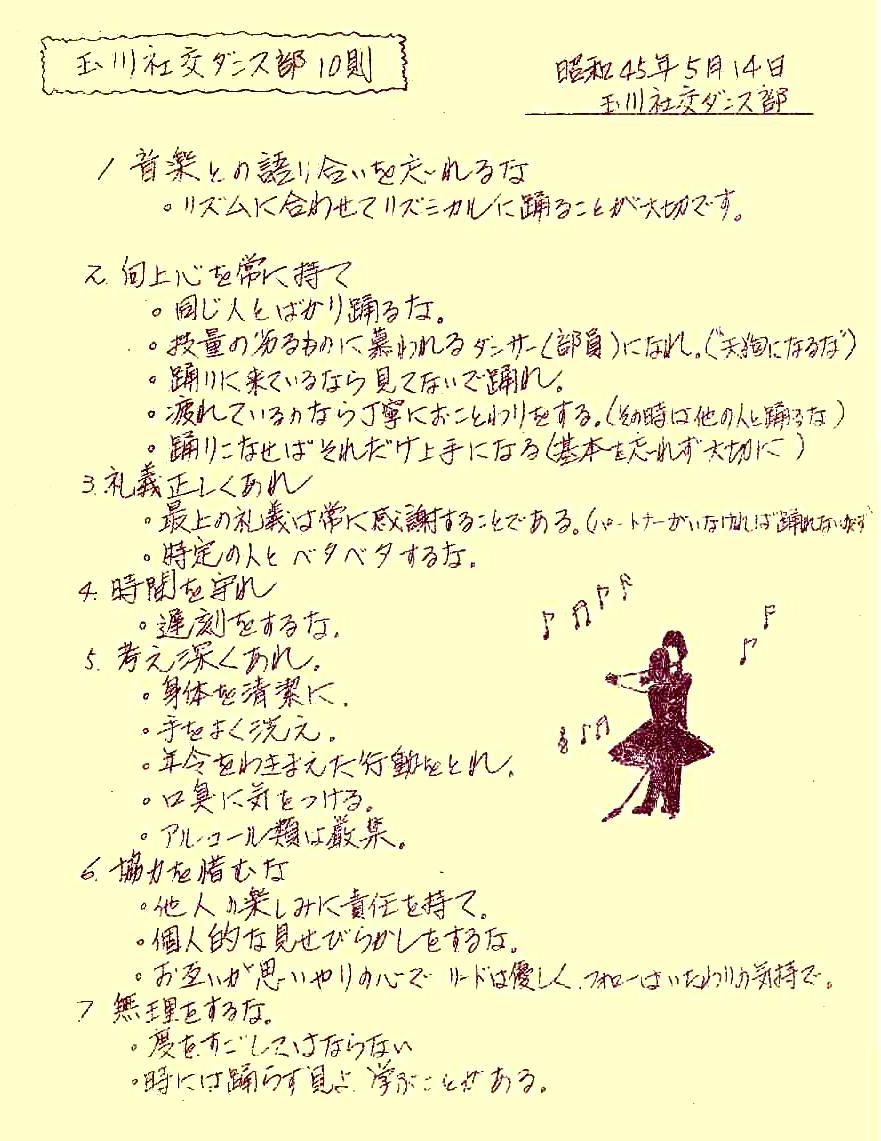 玉川社交ダンス部10則
昭和45年5月14日
玉川社交ダンス部
1 音楽との語り合いを忘れるな
。リズムに合わせてリズミカルに踊ることが大切です。
2. 向上心を常に持て
。同じ人とばかり踊るな。
。技量の劣るものに慕われるダンサー(部員)になれ。("天狗になるな")
。踊りに来ているなら見てないで踊れ。
。疲れているのなら丁寧におことわりをする。(その時は他の人と踊るな)
。踊りこなせばそれだけ上手になる(基本を忘れず大切に)
3. 礼義正しくあれ
。最上の礼義は常に感謝することである。(パートナーがいなければ踊れない
。特定の人とベタベタするな。
4. 時間を守れ
。遅刻をするな。
5. 考え深くあれ。
。身体を清潔に。
。手をよく洗え。
。年令をわきまえた行動をとれ。
。口臭に気をつける。
。アルコール類は厳集。
6. 協力を惜むな
。他人の楽しみに責任を持て。
。個人的な見せびらかしをするな。
。お互いが思いやりの心でリードは優しく、フォローはいたわりの気持で。
7 無理をするな。
。度をすごしてはならない
。時には踊らず見よ、学ぶことがある。